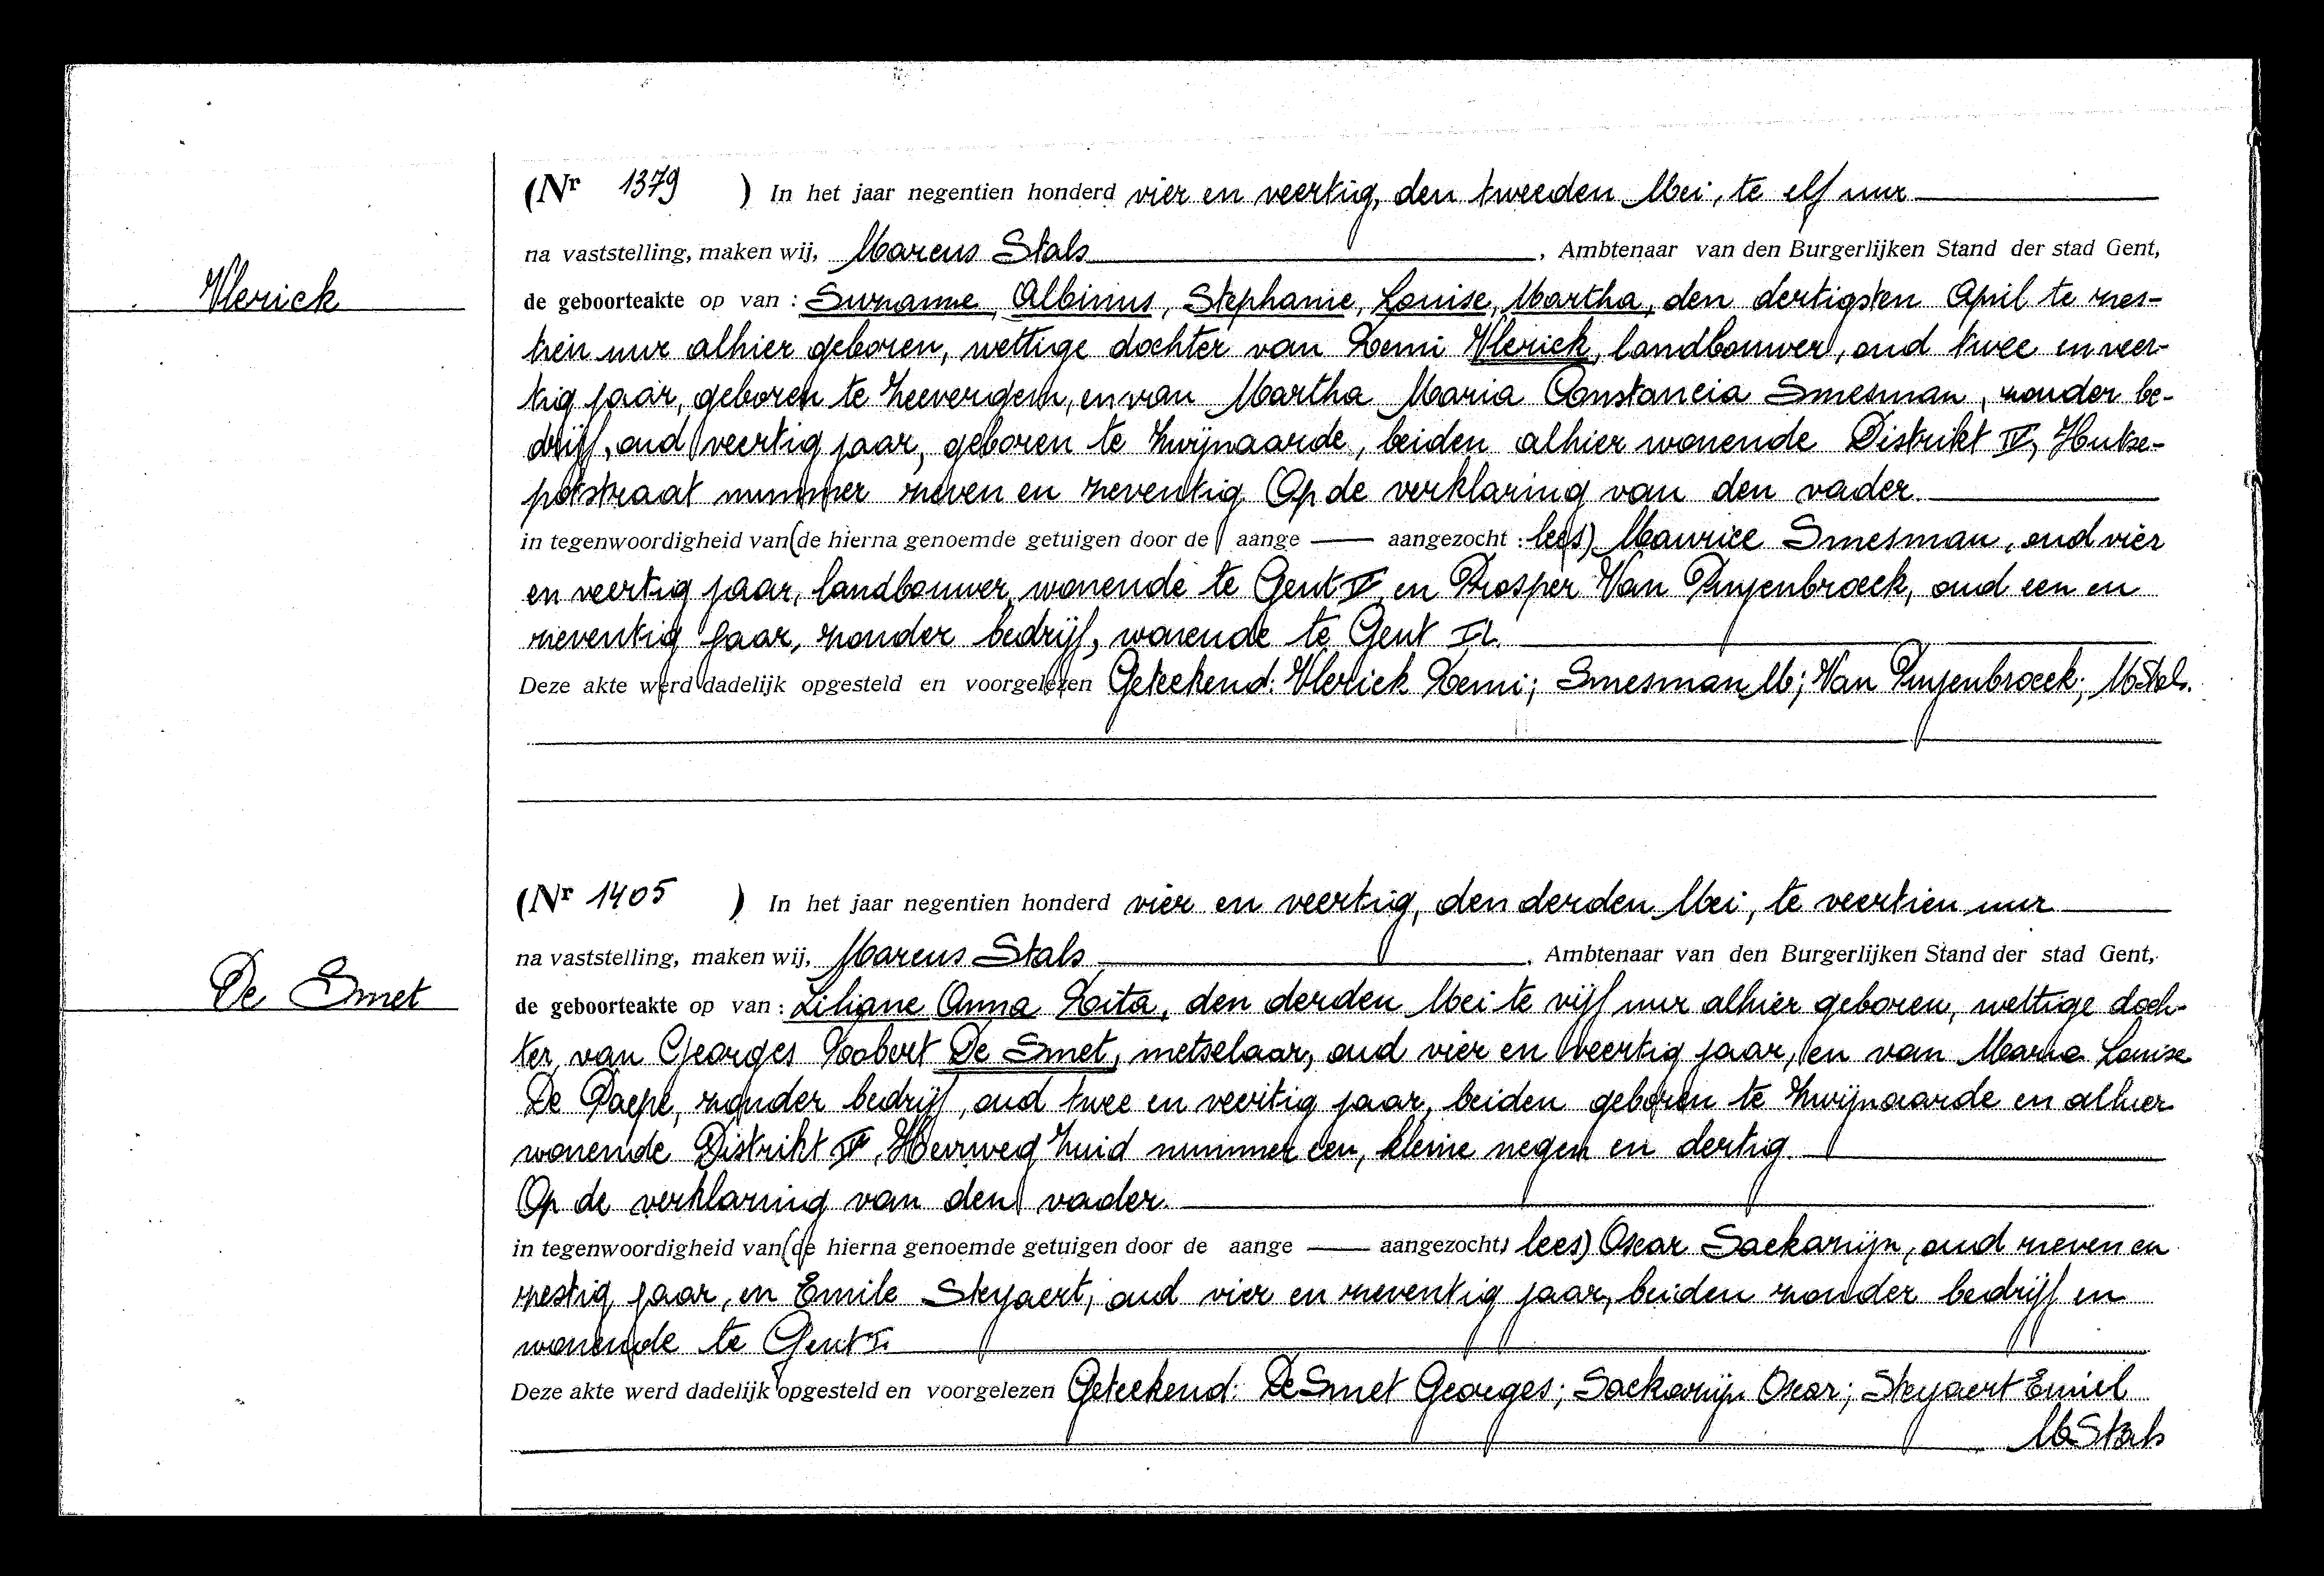 (Nr 1379 ) In het jaar negentien honderd vier en veertig, den tweeden Mei, te elf uur
na vaststelling, maken wij, Marcus Stals, Ambtenaar van den Burgerlijken Stand der stad Gent,
Vlerick
de geboorteakte op van : Suzanne, Albinus, Stephanie, Louise, Martha, den dertigsten April te zes-
tien uur alhier geboren, wettige dochter van Remi Vlerick, landbouwer, oud twee en veer-
tig jaar, geboren te Zeevergem, en van Martha Maria Constancia Smesman, zonder be-
drijf, oud veertig jaar, geboren te Zwijnaarde, beiden alhier wonende Distrikt IV, Hutse-
potstraat nummer zeven en zeventig Op de verklaring van den vader.
in tegenwoordigheid van (de hierna genoemde getuigen door de aange aangezocht : lees) Maurice Smesman, oud vier
en veertig jaar, landbouwer, wonende te Gent IV en Prosper Van Puyenbroeck, oud een en
zeventig jaar, zonder bedrijf, wonende te Gent
Deze akte werd dadelijk opgesteld en voorgelezen Geteekend: Vlerick Remi; Smesman M; Van Puyenbroeck; M Stals.
(Nr 1405 ) In het jaar negentien honderd vier en veertig, den derden Mei, te veertien uur
na vaststelling, maken wij, Marcus Stals, Ambtenaar van den Burgerlijken Stand der stad Gent,
De Smet
de geboorteakte op van : Liliane Anna Rita, den derden Mei te vijf uur alhier geboren, wettige doch-
ter, van Georges Robert De Smet, metselaar, oud vier en veertig jaar, en van Maria Louise
De Paepe, zonder bedrijf, oud twee en veertig jaar, beiden geboren te Zwijnaarde en alhier
wonende Distrikt IV, Heerweg Zuid nummer een, kleine negen en dertig.
Op de verklaring van den vader.
in tegenwoordigheid van (de hierna genoemde getuigen door de aange aangezocht: lees) Oscar Saekarijn, oud zeven en
zestig jaar, en Emile Steyaert, oud vier en zeventig jaar, beiden zonder bedrijf en
wonende te Gent I.
Deze akte werd dadelijk opgesteld en voorgelezen Geteekend: De Smet Georges; Saekarijn Oscar; Steyaert Emiel
M Stals